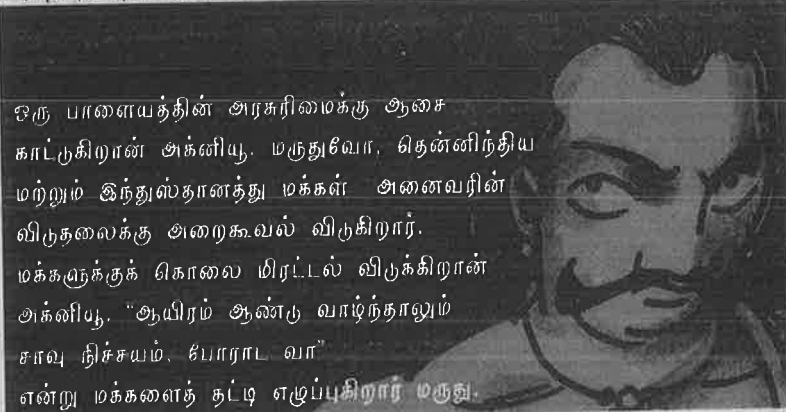 ஒரு பாளையத்தின் அரசுரிமைக்கு ஆசை
காட்டுகிறான் அக்னியூ. மருதுவோ, தென்னிந்திய
மற்றும் இந்துஸ்தானத்து மக்கள் அனைவரின்
விடுதலைக்கு அறைகூவல் விடுகிறார்.
மக்களுக்குக் கொலை மிரட்டல் விடுக்கிறான்
அக்னியூ. “ஆயிரம் ஆண்டு வாழ்ந்தாலும்
சாவு நிச்சயம். போராட வா”
என்று மக்களைத் தட்டி எழுப்புகிறார் மருது.